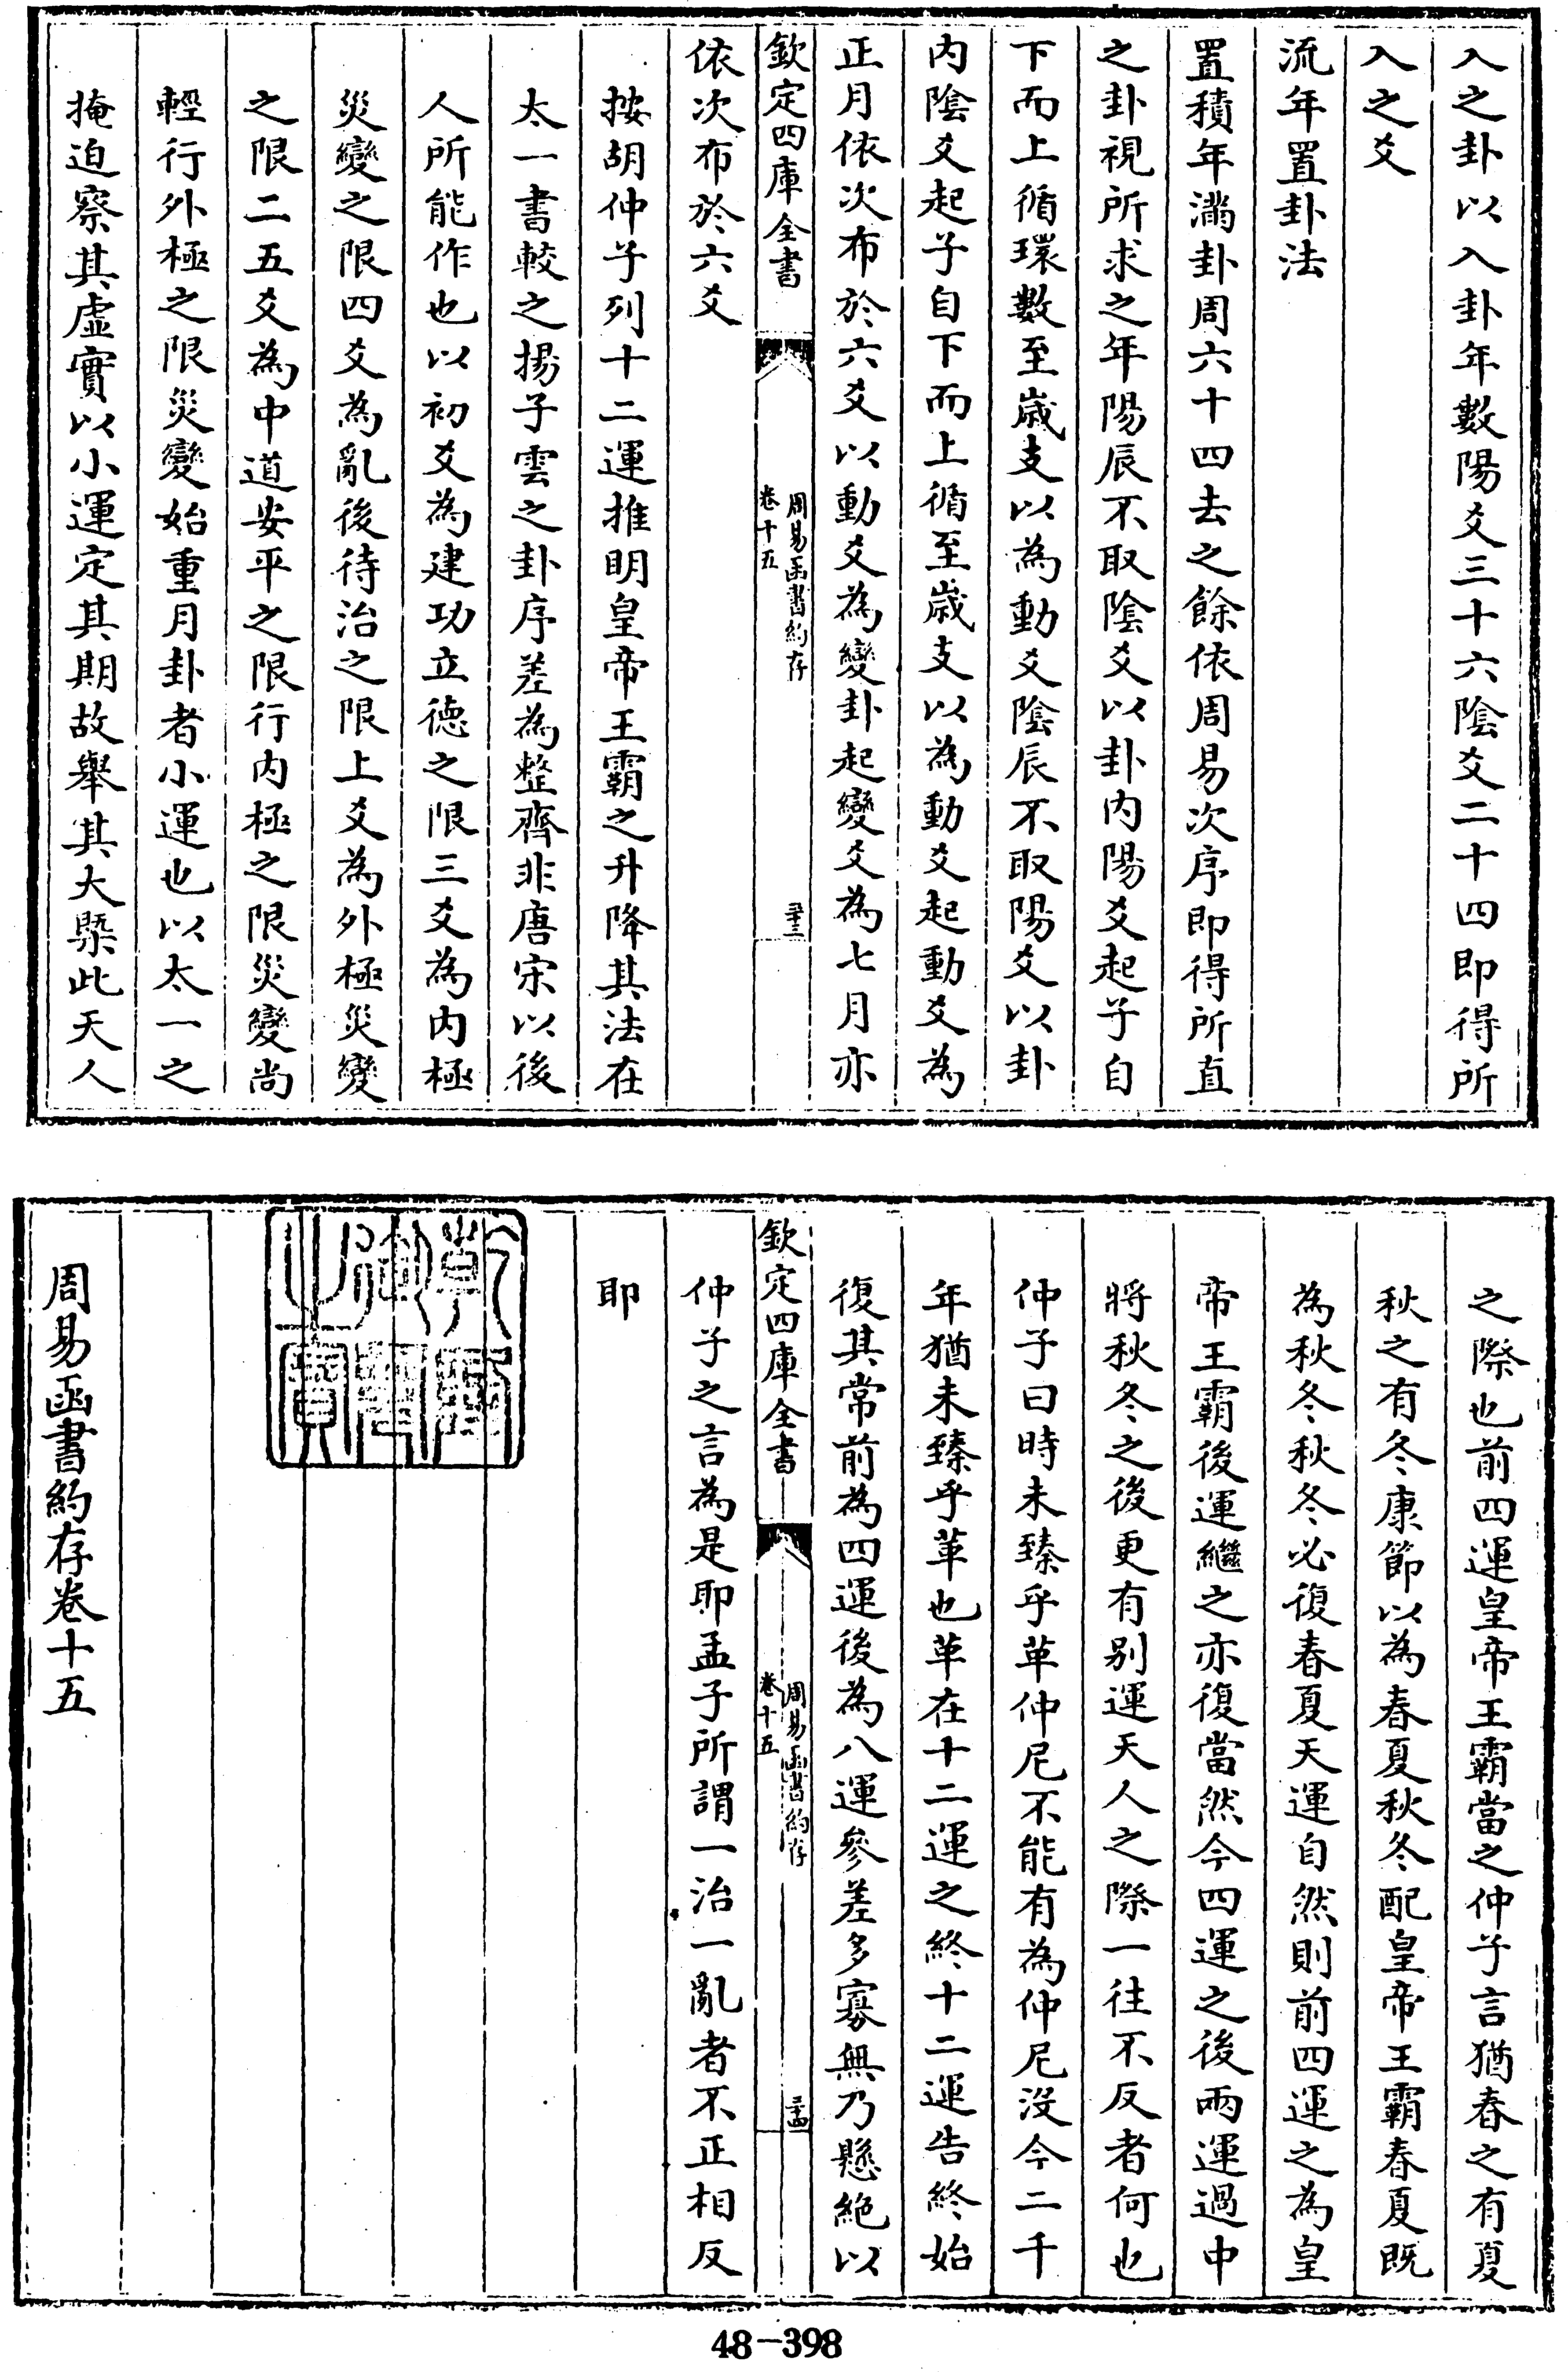 入之卦以入卦年數陽爻三十六陰爻二十四即得所
入之爻
流年置卦法
置積年滿卦周六十四去之餘依周易次序即得所直
之卦視所求之年陽辰不取陰爻以卦内陽爻起子自
下而上循環數至歲支以為動爻陰辰不取陽爻以卦
内陰爻起子自下而上循至歲支以為動爻起動爻為
正月依次布於六爻以動爻為變卦起變爻為七月亦
欽定四庫全書
周易函書約存
卷十五
三十三
依次布於六爻
按胡仲子列十二運推明皇帝王霸之升降其法在
太一書較之揚子雲之卦序差為整齊非唐宋以後
人所能作也以初爻為建功立德之限三爻為内極
災變之限四爻為亂後待治之限上爻為外極災變
之限二五爻為中道安平之限行内極之限災變尚
輕行外極之限災變始重月卦者小運也以太一之
掩迫察其虛實以小運定其期故舉其大槩此天人
之際也前四運皇帝王霸當之仲子言猶春之有夏
秋之有冬康節以為春夏秋冬配皇帝王霸春夏既
為秋冬秋冬必復春夏天運自然則前四運之為皇
帝王霸後運繼之亦復當然今四運之後兩運過中
將秋冬之後更有别運天人之際一往不反者何也
仲子曰時未臻乎革仲尼不能有為仲尼沒今二千
年猶未臻乎革也革在十二運之終十二運告終始
復其常前為四運後為八運參差多寡無乃懸絶以
欽定四庫全書
周易函書約存
卷十五
三十四
仲子之言為是耶孟子所謂一治一亂者不正相反
耶
周易函書約存卷十五
48-398